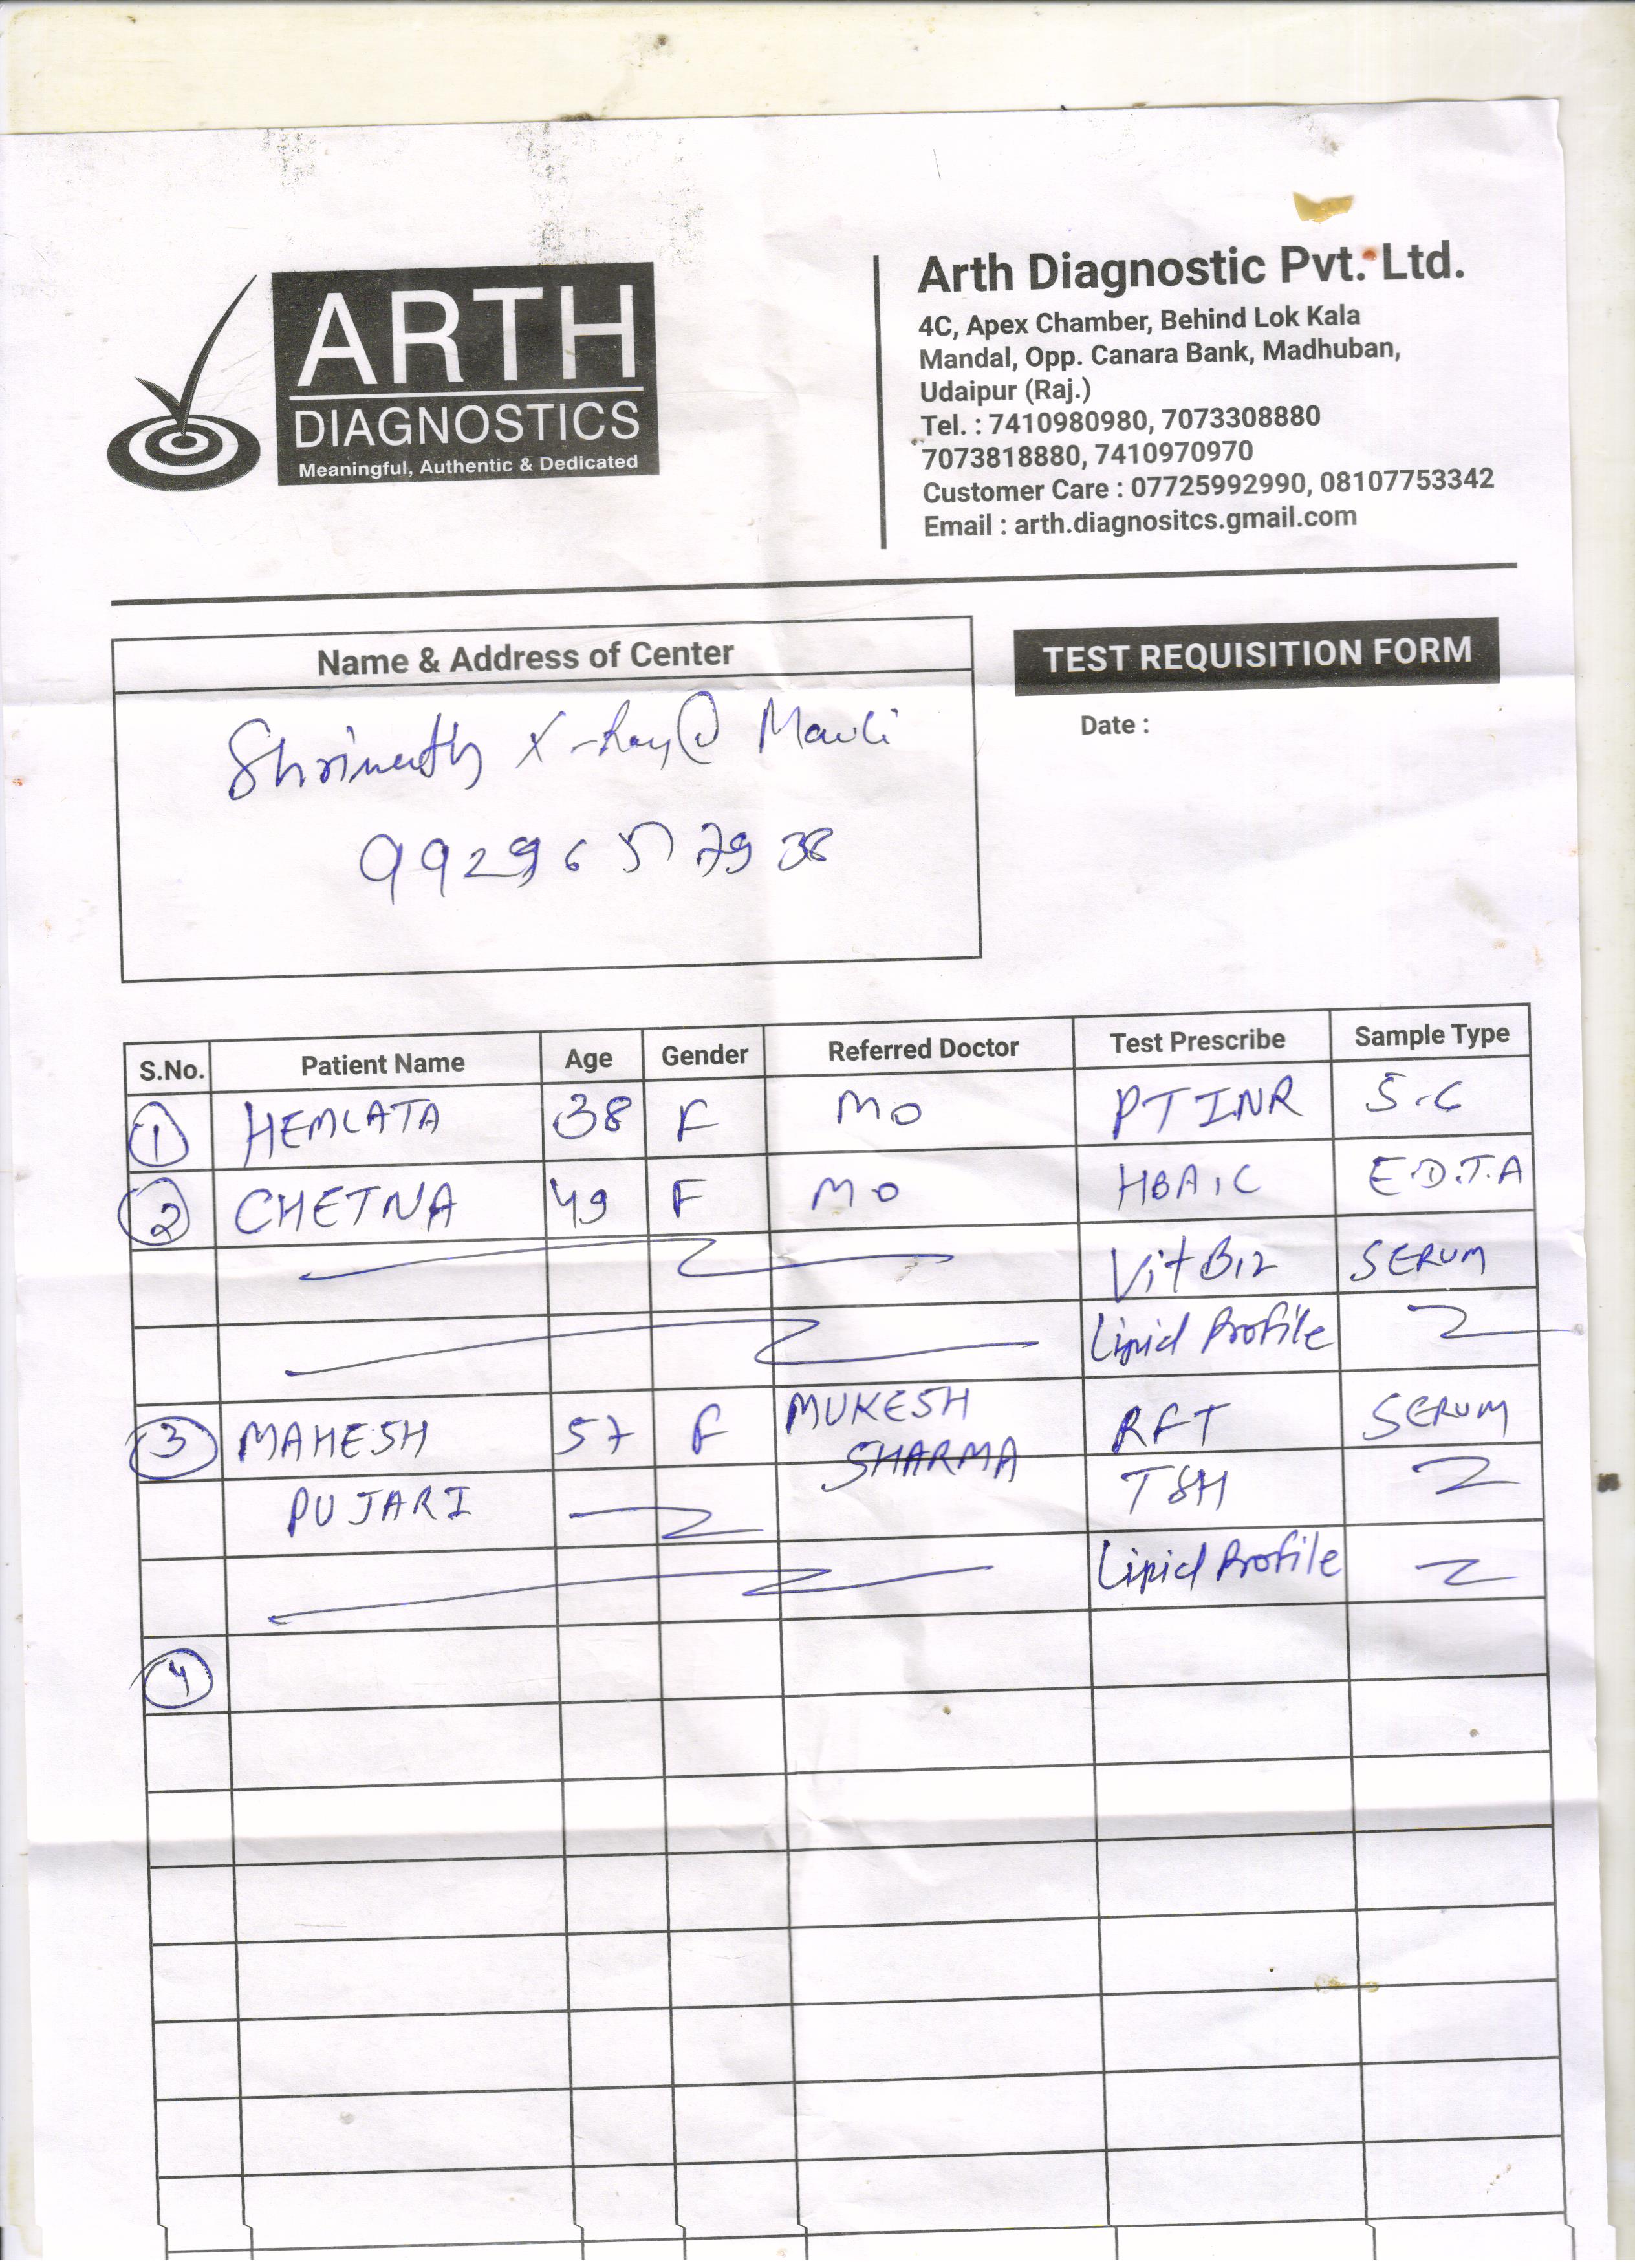 ARTH
DIAGNOSTICS
Meaningful, Authentic & Dedicated
Arth Diagnostic Pvt. Ltd.
4C, Apex Chamber, Behind Lok Kala
Mandal, Opp. Canara Bank, Madhuban,
Udaipur (Raj.)
Tel. : 7410980980, 7073308880
7073818880, 7410970970
Customer Care : 07725992990, 08107753342
Email : arth.diagnositcs.gmail.com
Name & Address of Center
TEST REQUISITION FORM
Date :
Shrinath X-Ray @ Mavli
S.No. Patient Name Age Gender Referred Doctor Test Prescribe Sample Type
1 HEMLATA 38 F MO PT INR S.C
2 CHETNA 49 F MO HBA1C E.D.T.A
Vit B12 SERUM
Lipid Profile
3 MAHESH 57 F MUKESH SHARMA RFT SERUM
PUJARI TSH
Lipid Profile
4